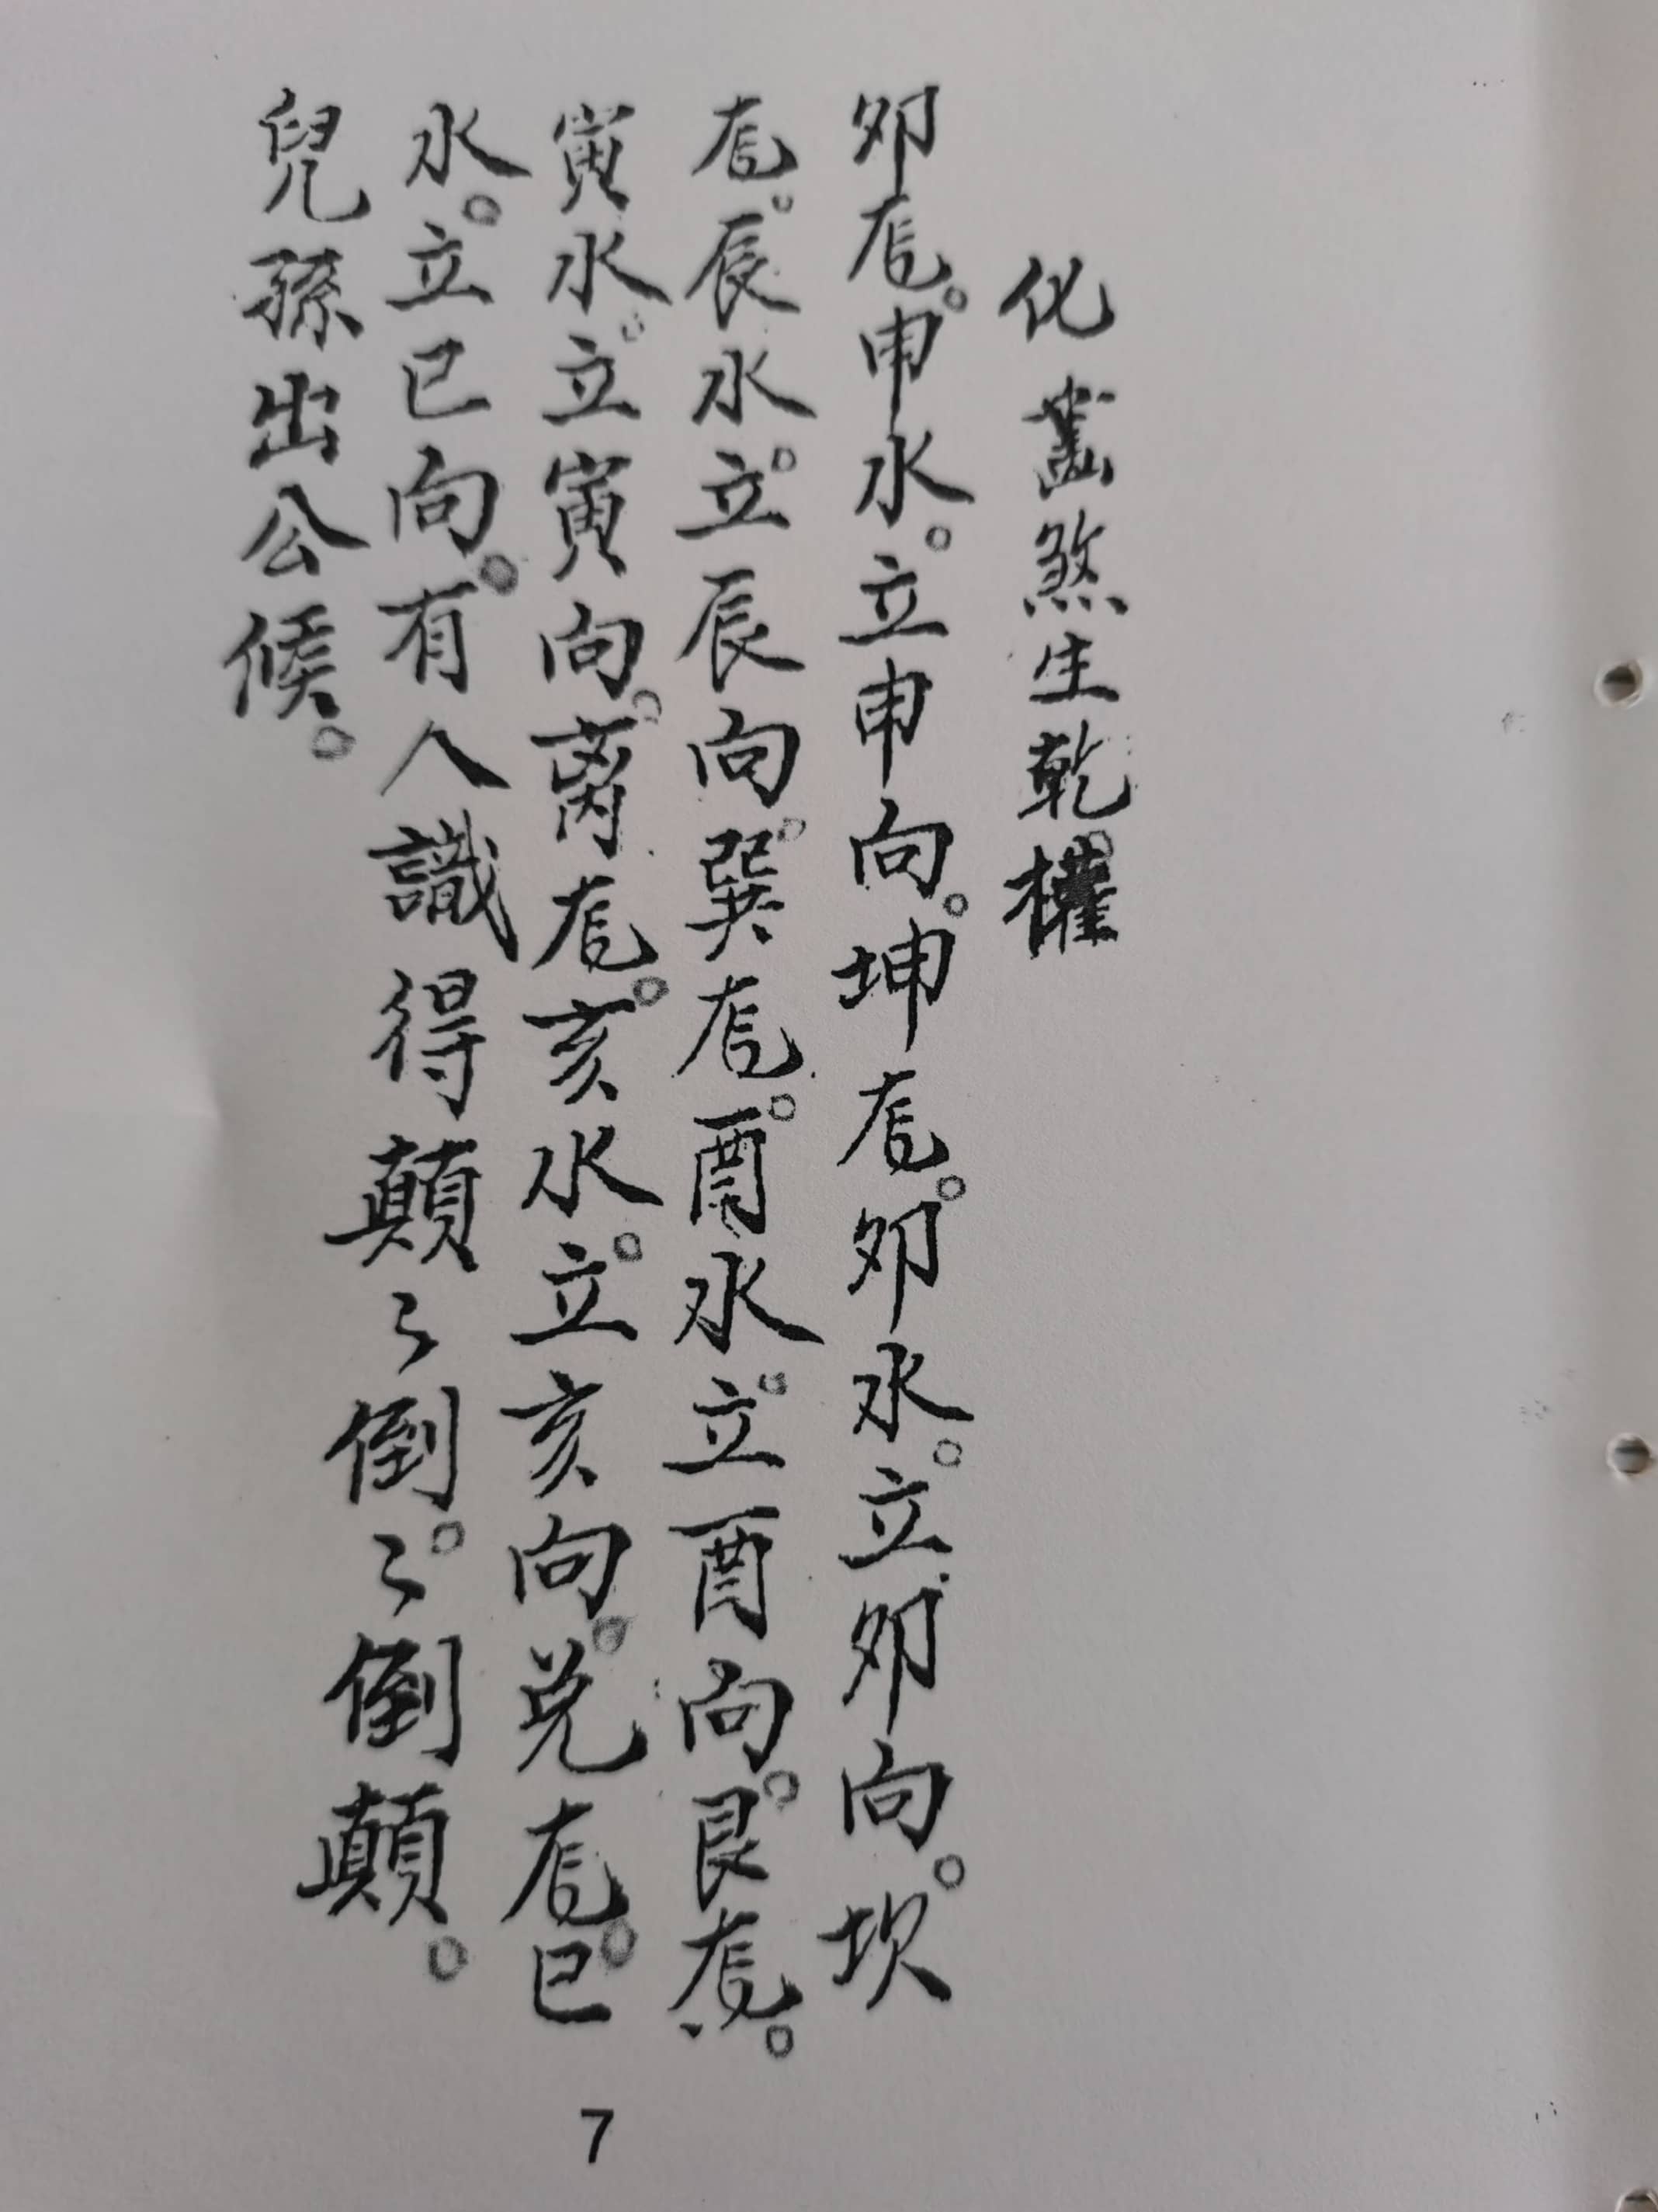 化煞生乾。權
卯龙。申水。立申向。坤龙。卯水。立卯向。坎
龙。辰水。立辰向。巽龙。酉水。立酉向。艮龙。
寅水。立寅向。离龙。亥水。立亥向。兑龙。巳
水。立巳向。有人識得顛〻倒。〻倒顛。
兒孫出公候。
7